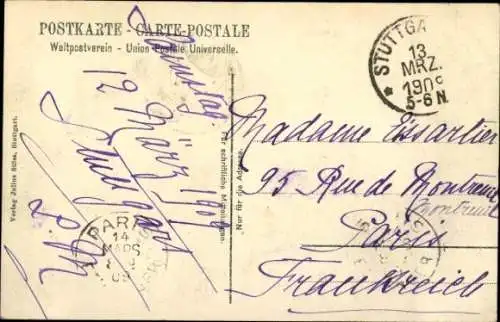 POSTKARTE - CARTE-POSTALE
Weltpostverein - Union Postale Universelle.
STUTTGA
13
MRZ.
190
5-6 N
Samstag
12 März 1909
Stuttgart
Madame Tissartier
95 Rue de Montreuil
Montreuil
Paris
Frankreich
PARI
14
MARS
09
Für schriftliche Mitteilungen.
Nur für die Adresse.
Verlag Julius Sittes, Stuttgart.